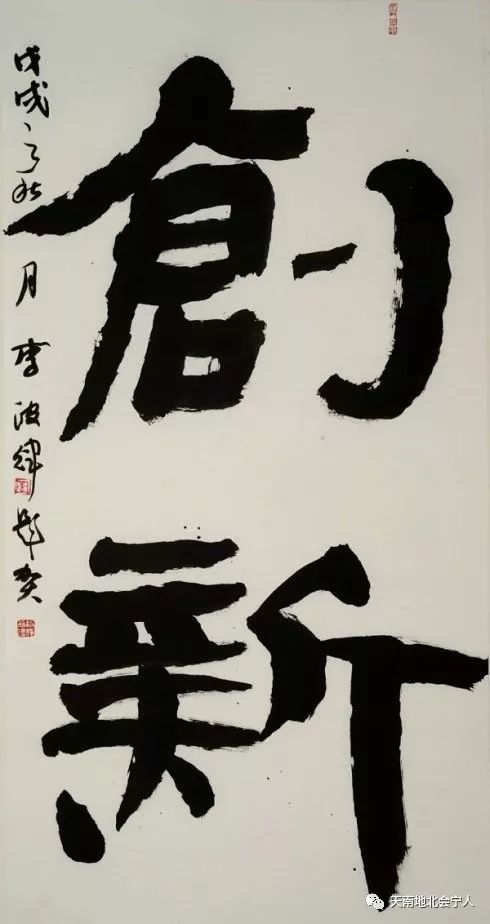 創新
戊戌之秋月李波題
天南地北会宁人